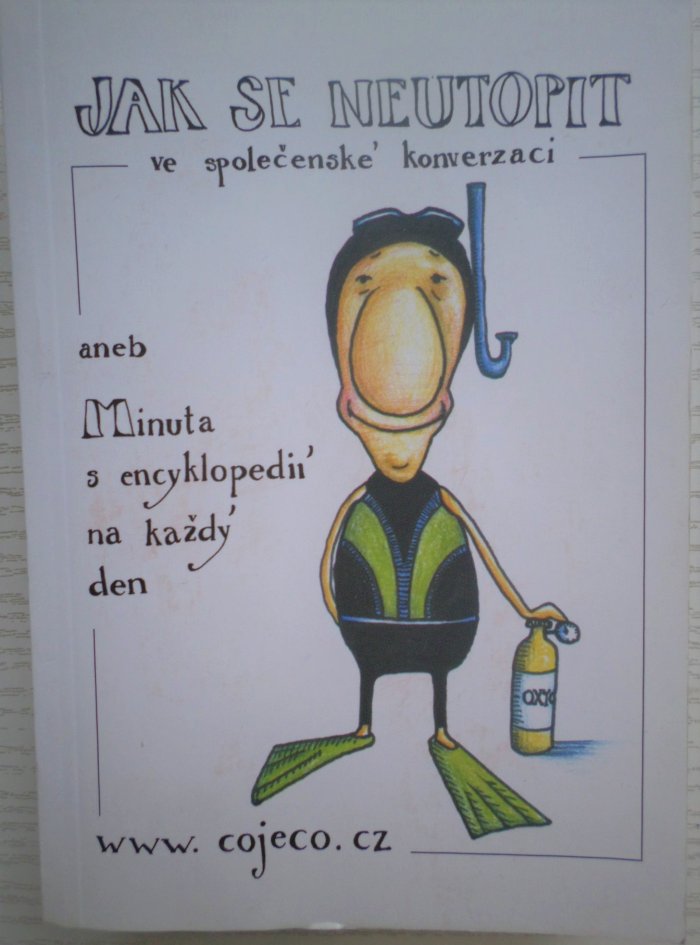 JAK SE NEUTOPIT
ve společenské konverzaci
aneb
Minuta
s encyklopedií
na každý
den
OXY
www. cojeco. cz